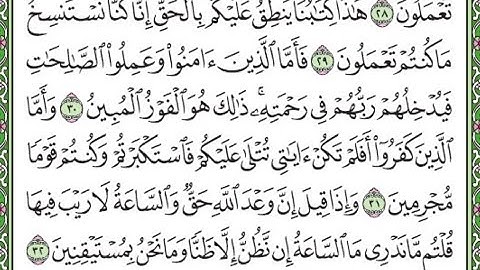 تَعْمَلُونَ ٢٨ هَٰذَا كِتَٰبُنَا يَنطِقُ عَلَيْكُم بِالْحَقِّ إِنَّا كُنَّا نَسْتَنسِخُ
مَا كُنتُمْ تَعْمَلُونَ ٢٩ فَأَمَّا الَّذِينَ ءَامَنُوا۟ وَعَمِلُوا۟ الصَّٰلِحَٰتِ
فَيُدْخِلُهُمْ رَبُّهُمْ فِى رَحْمَتِهِۦ ۚ ذَٰلِكَ هُوَ الْفَوْزُ الْمُبِينُ ٣٠ وَأَمَّا
الَّذِينَ كَفَرُوٓا۟ أَفَلَمْ تَكُنْ ءَايَٰتِى تُتْلَىٰ عَلَيْكُمْ فَاسْتَكْبَرْتُمْ وَكُنتُمْ قَوْمًا
مُّجْرِمِينَ ٣١ وَإِذَا قِيلَ إِنَّ وَعْدَ اللَّهِ حَقٌّ وَالسَّاعَةُ لَا رَيْبَ فِيهَا
قُلْتُم مَّا نَدْرِى مَا السَّاعَةُ إِن نَّظُنُّ إِلَّا ظَنًّا وَمَا نَحْنُ بِمُسْتَيْقِنِينَ ٣٢